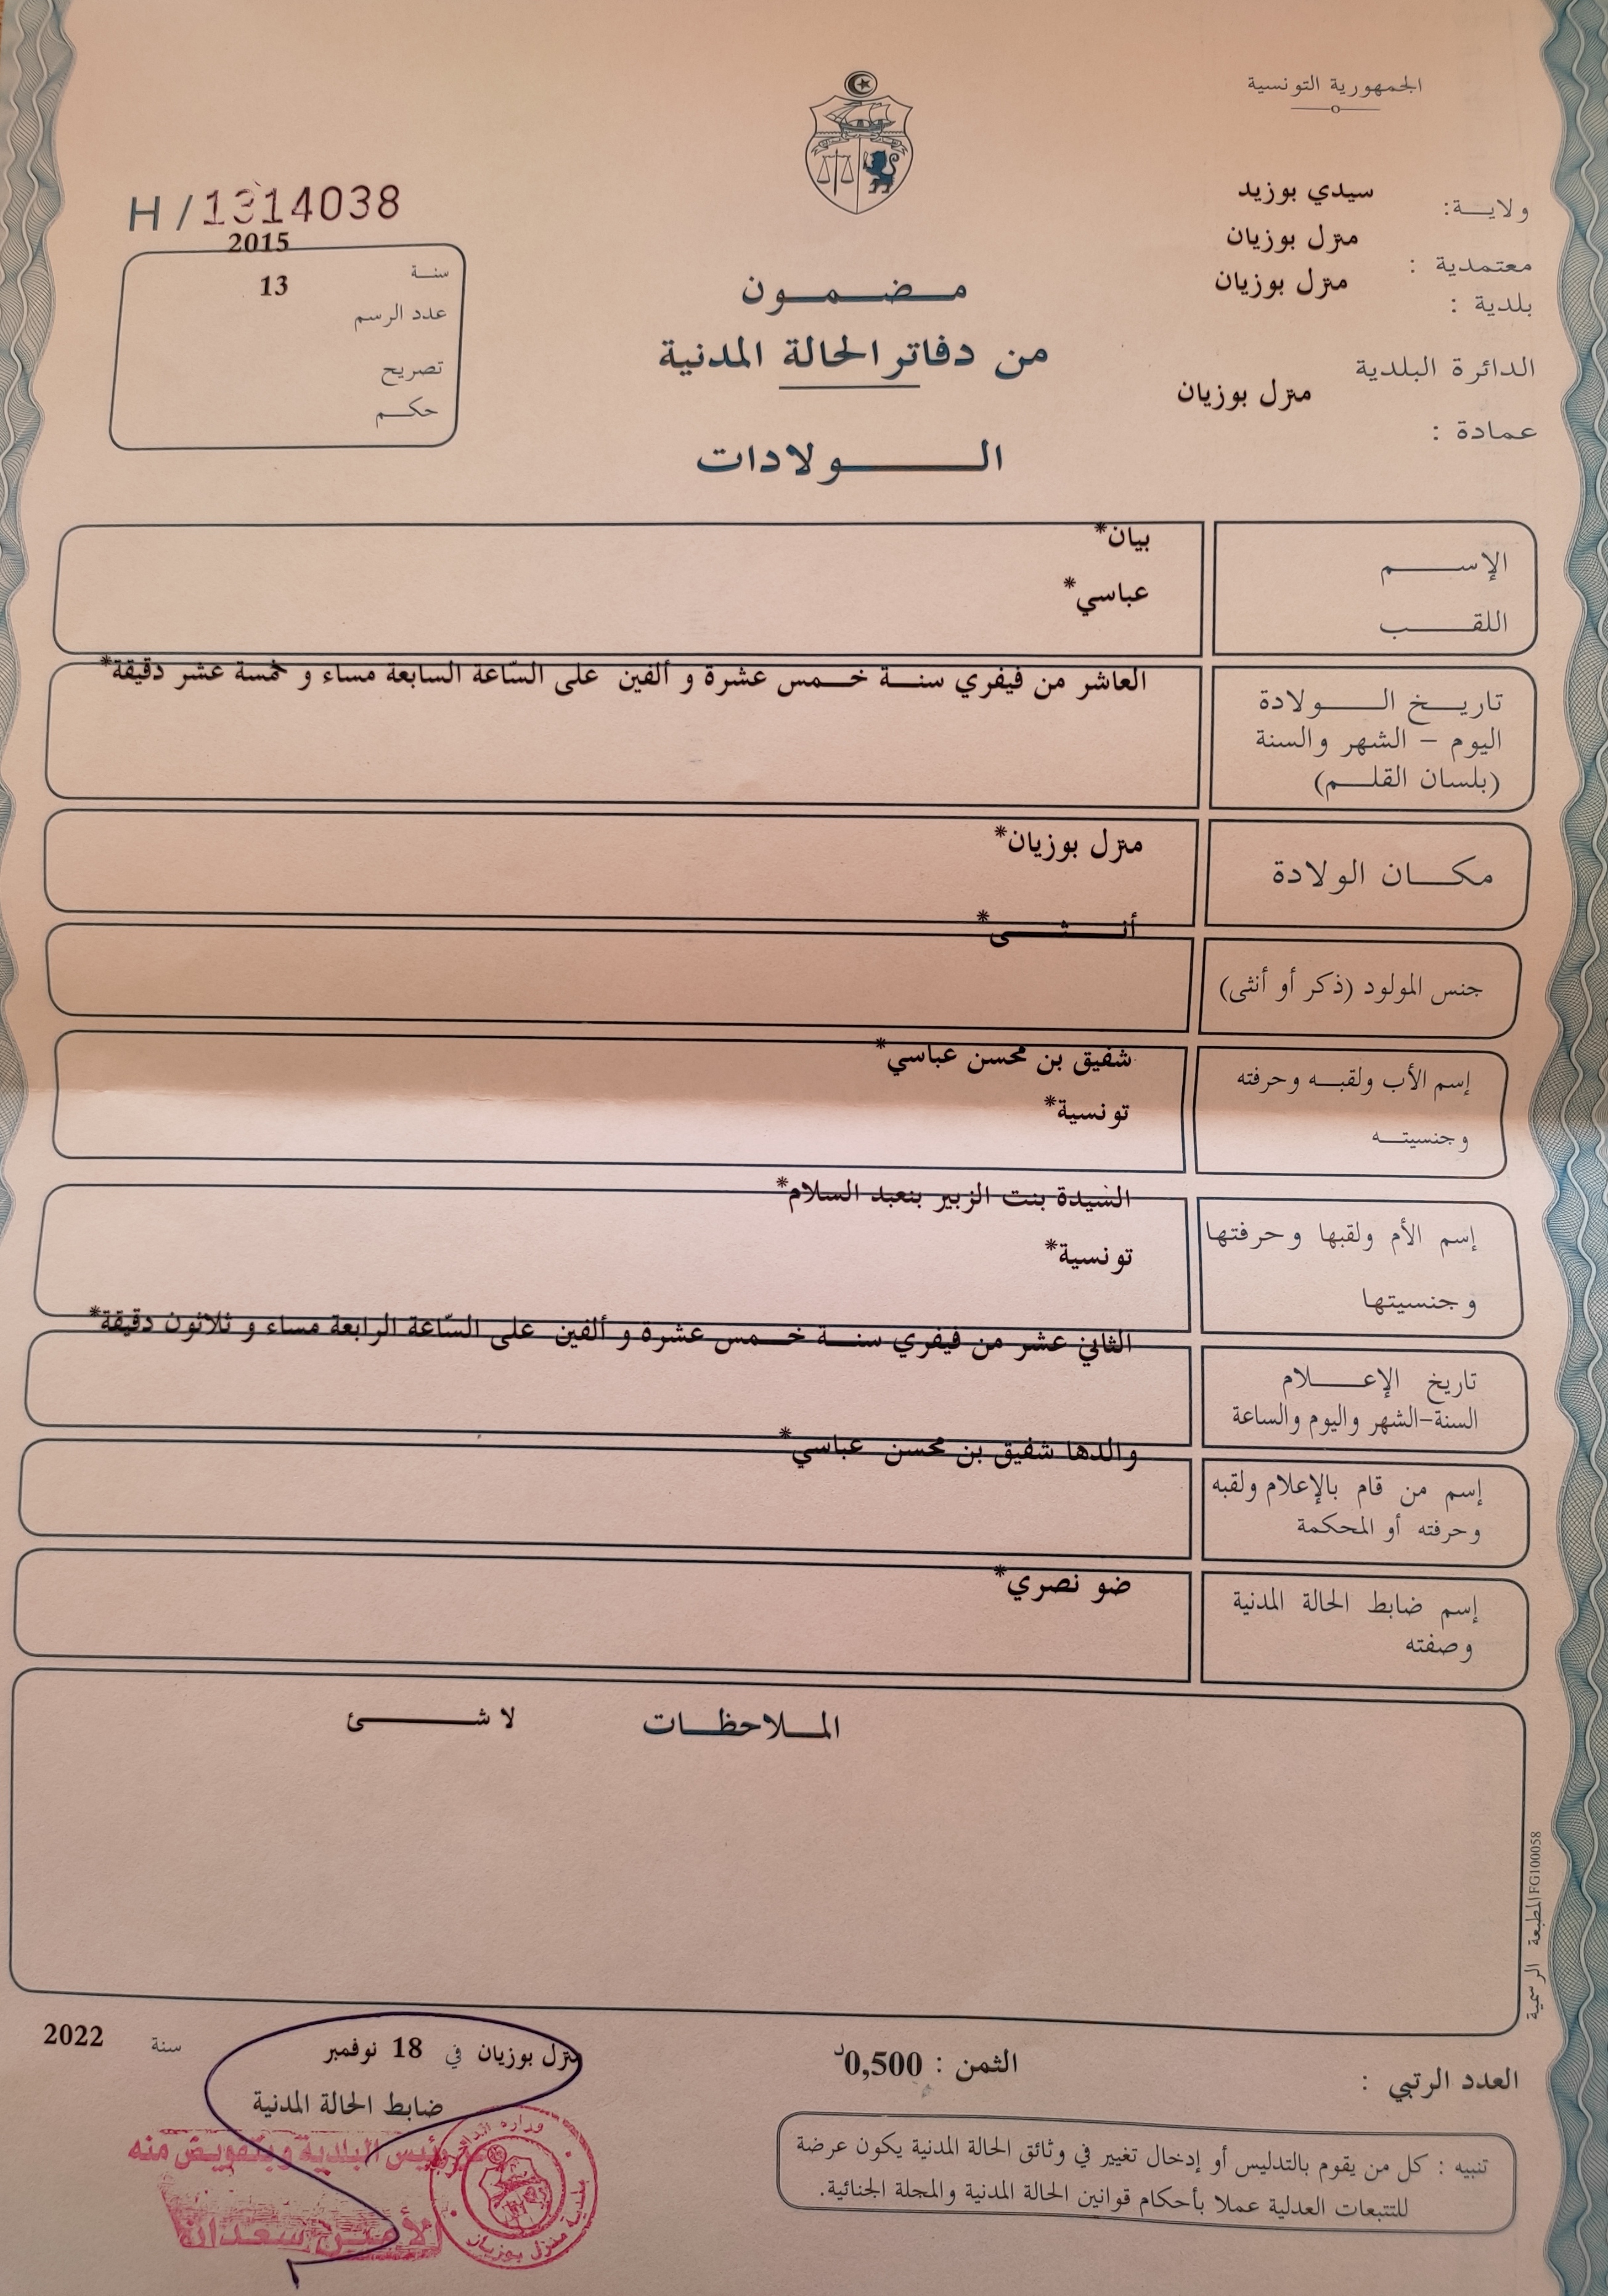 الجمهورية التونسية
ولاية: سيدي بوزيد
معتمدية : منزل بوزيان
بلدية : منزل بوزيان
الدائرة البلدية
عمادة : منزل بوزيان
H/1314038
سنة 2015
عدد الرسم 13
تصريح
حكم
مضمون
من دفاتر الحالة المدنية
الولادات
الإسم بيان*
اللقب عباسي*
تاريخ الولادة العاشر من فيفري سنة خمس عشرة و ألفين على السّاعة السابعة مساء و خمسة عشر دقيقة*
اليوم - الشهر والسنة
(بلسان القلم)
مكان الولادة منزل بوزيان*
جنس المولود (ذكر أو أنثى) أنثى*
إسم الأب ولقبه وحرفته شفيق بن محسن عباسي*
وجنسيته تونسية*
إسم الأم ولقبها وحرفتها السيدة بنت الزبير بنعبد السلام*
وجنسيتها تونسية*
تاريخ الإعلام الثاني عشر من فيفري سنة خمس عشرة و ألفين على السّاعة الرابعة مساء و ثلاثون دقيقة*
السنة-الشهر واليوم والساعة
إسم من قام بالإعلام ولقبه والدها شفيق بن محسن عباسي*
وحرفته أو المحكمة
إسم ضابط الحالة المدنية ضو نصري*
وصفته
الملاحظات لا شئ
المطبعة الرسمية FG100058
العدد الرتبي :
الثمن : 0,500د
منزل بوزيان في 18 نوفمبر سنة 2022
ضابط الحالة المدنية
عن رئيس البلدية وبتفويض منه
الأمين سعداني
بلدية منزل بوزيان
تنبيه : كل من يقوم بالتدليس أو إدخال تغيير في وثائق الحالة المدنية يكون عرضة
للتتبعات العدلية عملا بأحكام قوانين الحالة المدنية والمجلة الجنائية.